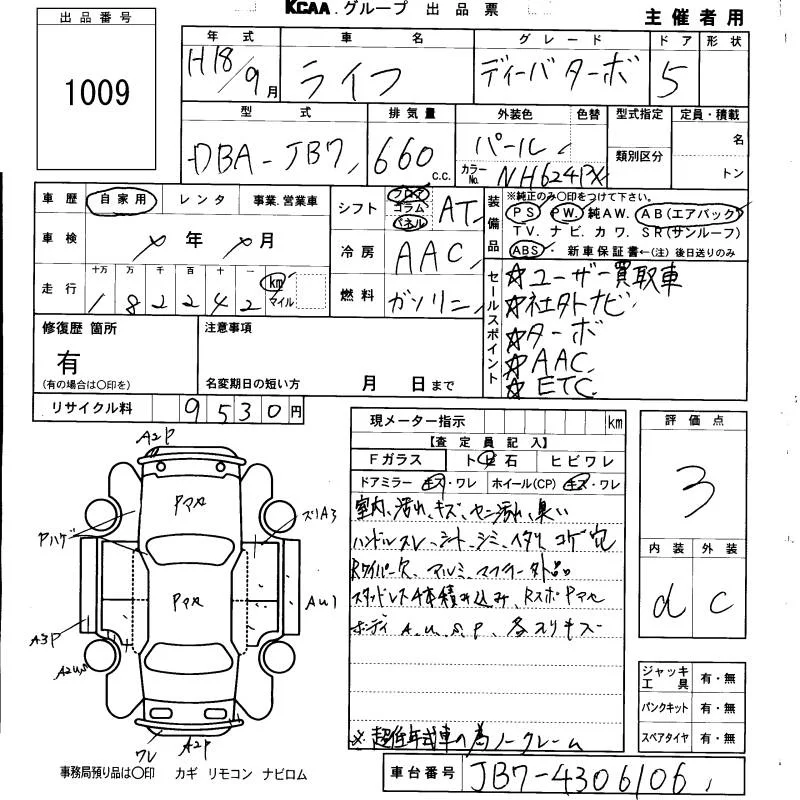 KCAA.グループ 出品票
主催者用
出品番号
1009
年式 車名 グレード ドア 形状
H18/9月 ライフ ディーバターボ 5
型式 排気量 外装色 色替 型式指定 定員・積載
DBA-JB7 660 c.c. パール 類別区分 名
カラーNo. NH624PX トン
車歴 自家用 レンタ 事業.営業車
シフト フロア コラム パネル AT
装備品
※純正のみ○印をつけて下さい。
PS PW. 純AW. AB(エアバック)
TV. ナビ. カワ. SR(サンルーフ)
ABS 新車保証書←(注) 後日送りのみ
車検 年 月
冷房 AAC
走行 十万 万 千 百 十 一
182242 km マイル
燃料 ガソリン
セールスポイント
☆ユーザー買取車
☆社外ナビ
☆ターボ
☆AAC
☆ETC
修復歴 箇所
有
(有の場合は○印を)
注意事項
名変期日の短い方 月 日まで
リサイクル料 9530円
現メーター指示 km
【査定員記入】
Fガラス ト 石 ヒビワレ
ドアミラー キズ・ワレ ホイール(CP) キズ・ワレ
室内、汚れ、キズ、 臭い
ハンドルスレ、シート、シミ、ヘタリ、コゲ穴
Rワイパー欠、アルミ、マフラー外品
スタッドレス4本積み込み、Rスポ
ボディ A.U.S.P、各スリキズ
※超低年式車の為ノークレーム
評価点
3
内装 外装
d C
ジャッキ工具 有・無
パンクキット 有・無
スペアタイヤ 有・無
A2P
Pハゲ
スリA3
AU1
A3P
ワレ
A2P
事務局預り品は○印 カギ リモコン ナビロム
車台番号 JB7-4306106